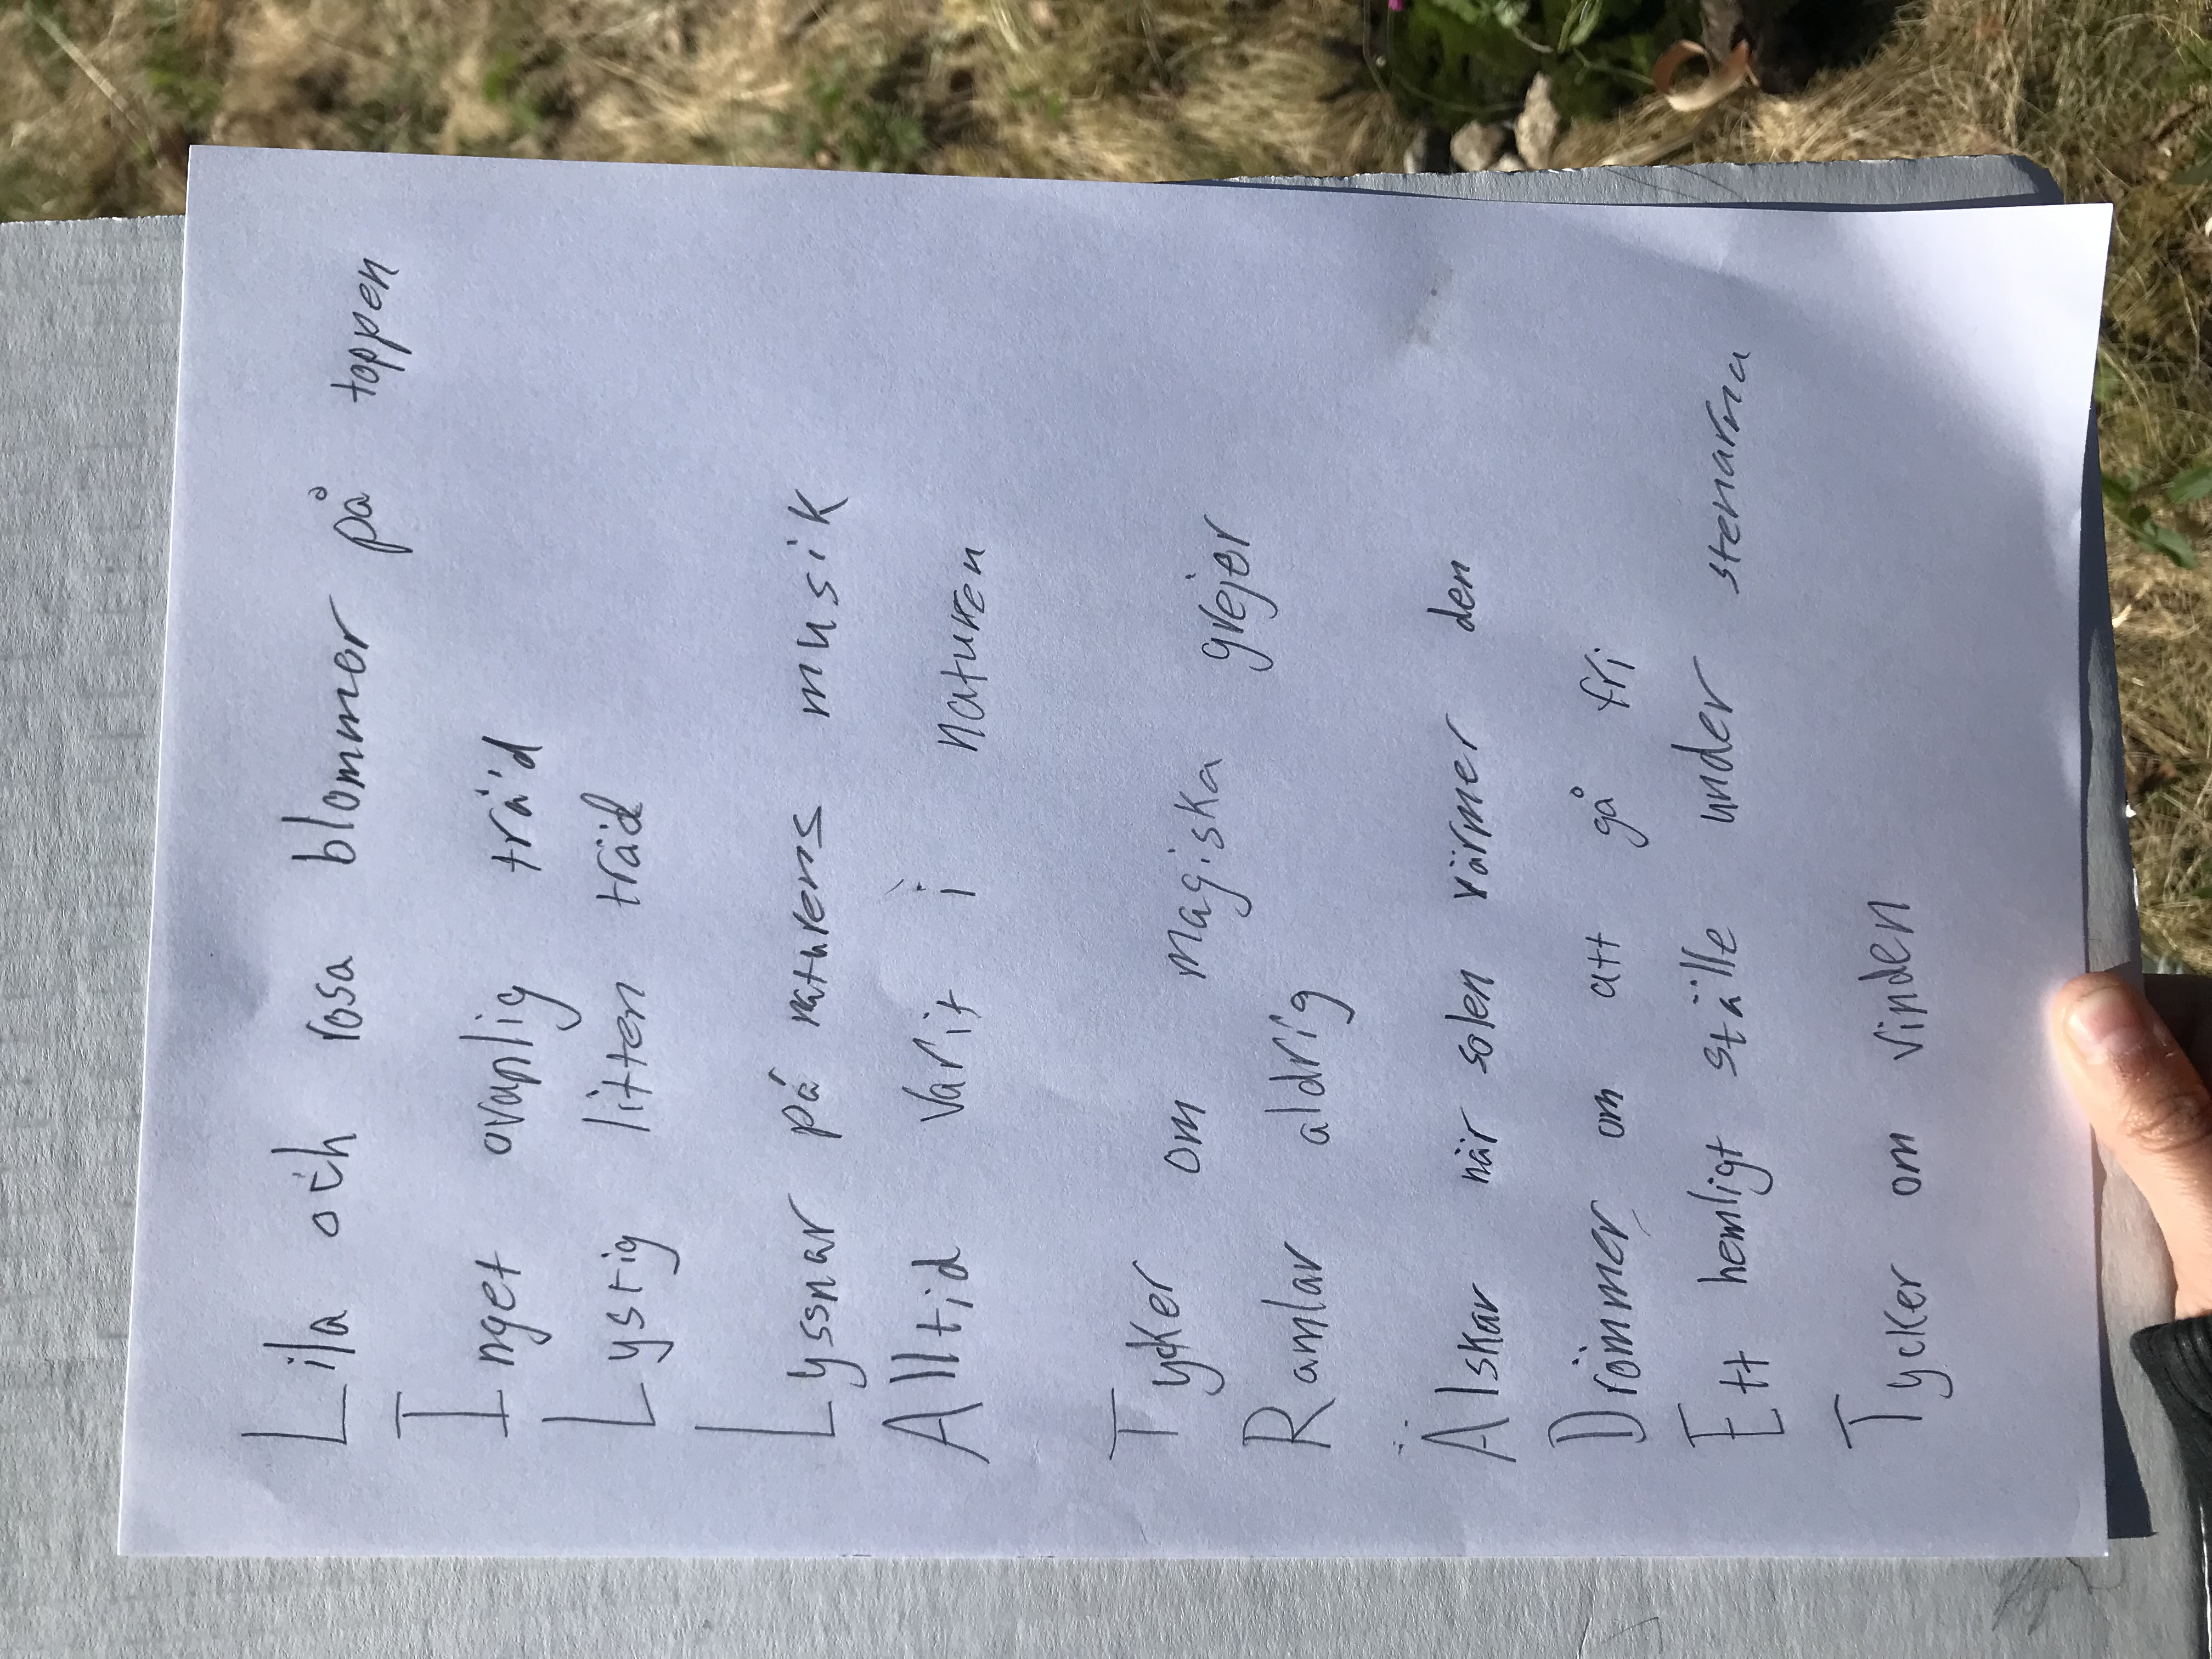 Lila och rosa blommer på toppen
Inget ovanlig träd
Lystig litten träd
Lyssnar på naturens musik
Alltid varit i naturen
Tycker om magiska grejer
Ramlar aldrig
Älskar när solen värmer den
Drömmer om att gå fri
Ett hemligt ställe under stenarna
Tycker om vinden